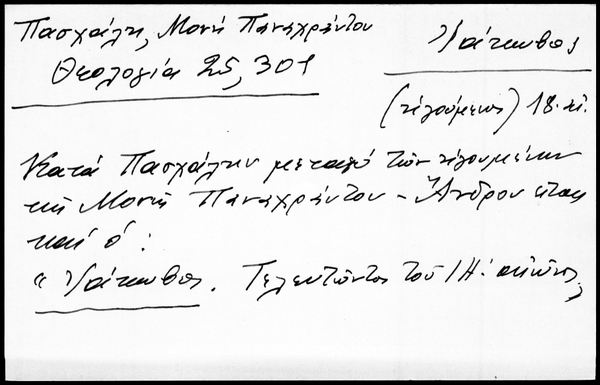 Πασχάλη, Μονή Παναχράντου
Θεολογία 25, 301
Ἰάκωβος
(ἡγούμενος) 18. αἰ.
Κατά Πασχάλην μεταξύ τῶν ἡγουμένων
τῆς Μονῆς Παναχράντου - Ἄνδρου ἦταν
καί ὁ :
"Ἰάκωβος. Τελευτῶντος τοῦ ΙΗ' αἰῶνος,